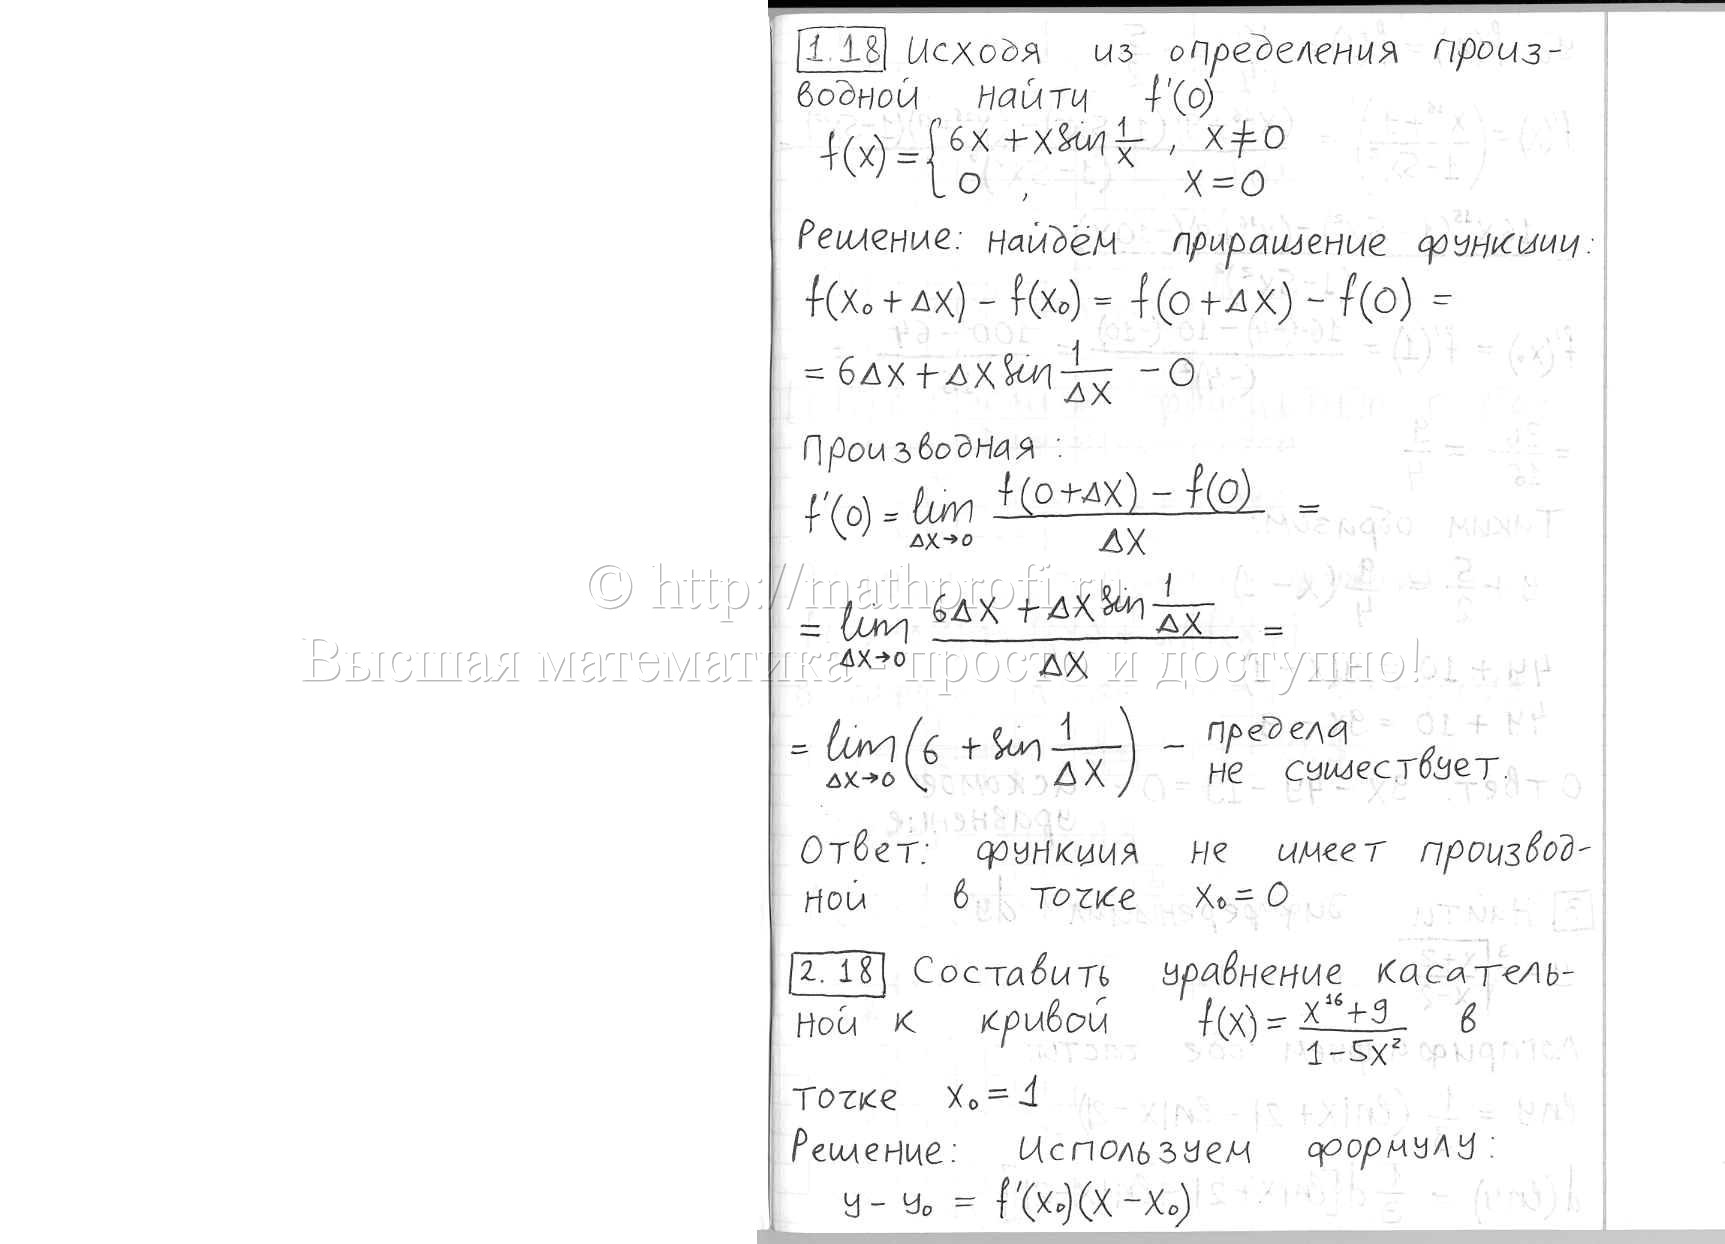 1.18 Исходя из определения произ-
водной найти f'(0)
f(x) = { 6x + x sin 1/x , x ≠ 0
0 , x = 0
Решение: найдём приращение функции:
f(x₀ + Δx) - f(x₀) = f(0 + Δx) - f(0) =
= 6Δx + Δx sin 1/Δx - 0
Производная:
f'(0) = lim Δx→0 (f(0+Δx) - f(0))/Δx =
© http://mathprofi.ru
= lim Δx→0 (6Δx + Δx sin 1/Δx)/Δx =
Высшая математика - просто и доступно!
= lim Δx→0 (6 + sin 1/Δx) - предела
не существует.
Ответ: функция не имеет производ-
ной в точке x₀ = 0
2.18 Составить уравнение касатель-
ной к кривой f(x) = (x¹⁶+9)/(1-5x²) в
точке x₀ = 1
Решение: Используем формулу:
y - y₀ = f'(x₀)(x - x₀)